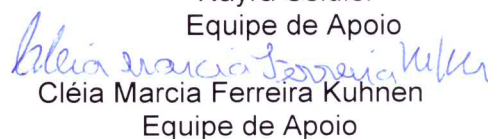 Equipe de Apoio
Cléia Marcia Ferreira Kuhnen
Cléia Marcia Ferreira Kuhnen
Equipe de Apoio